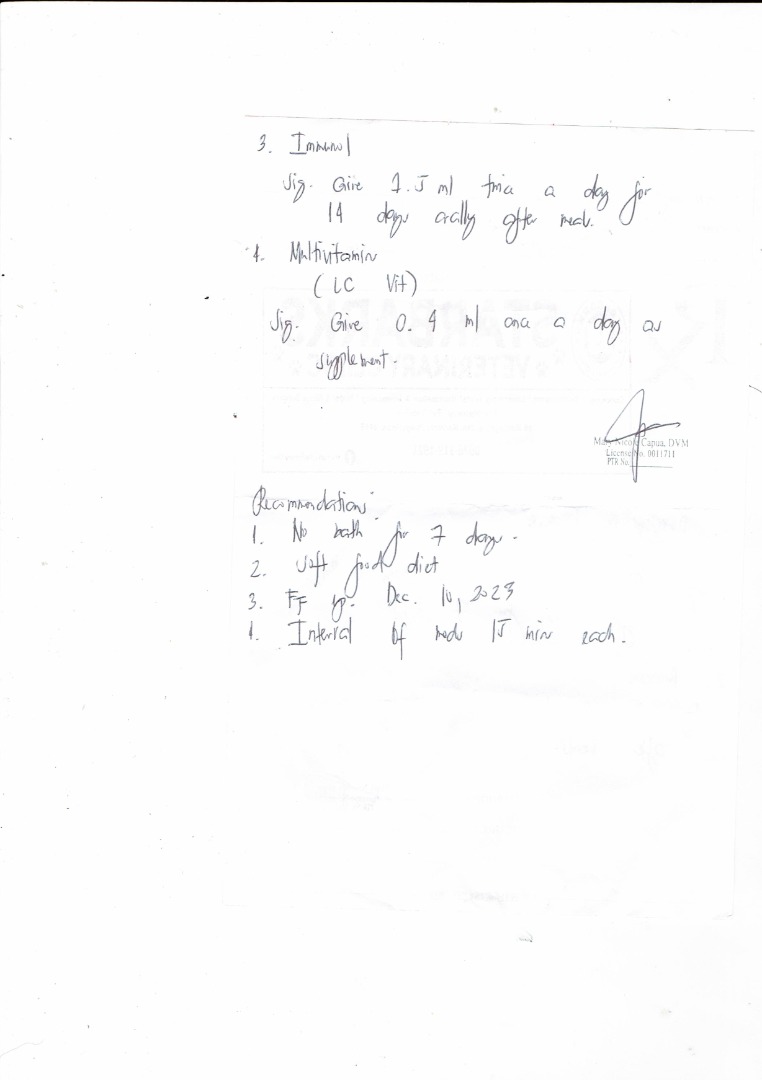 3. Immunol
Sig. Give 1.5 ml twice a day for
14 days orally after meal.
4. Multivitamin
(LC Vit)
Sig. Give 0.4 ml once a day as
supplement.
Mary Nicole Capua, DVM
License No. 0011711
PTR No.
Recommendations:
1. No bath for 7 days.
2. Soft food diet
3. FF up. Dec. 10, 2023
4. Interval of meds 15 min each.